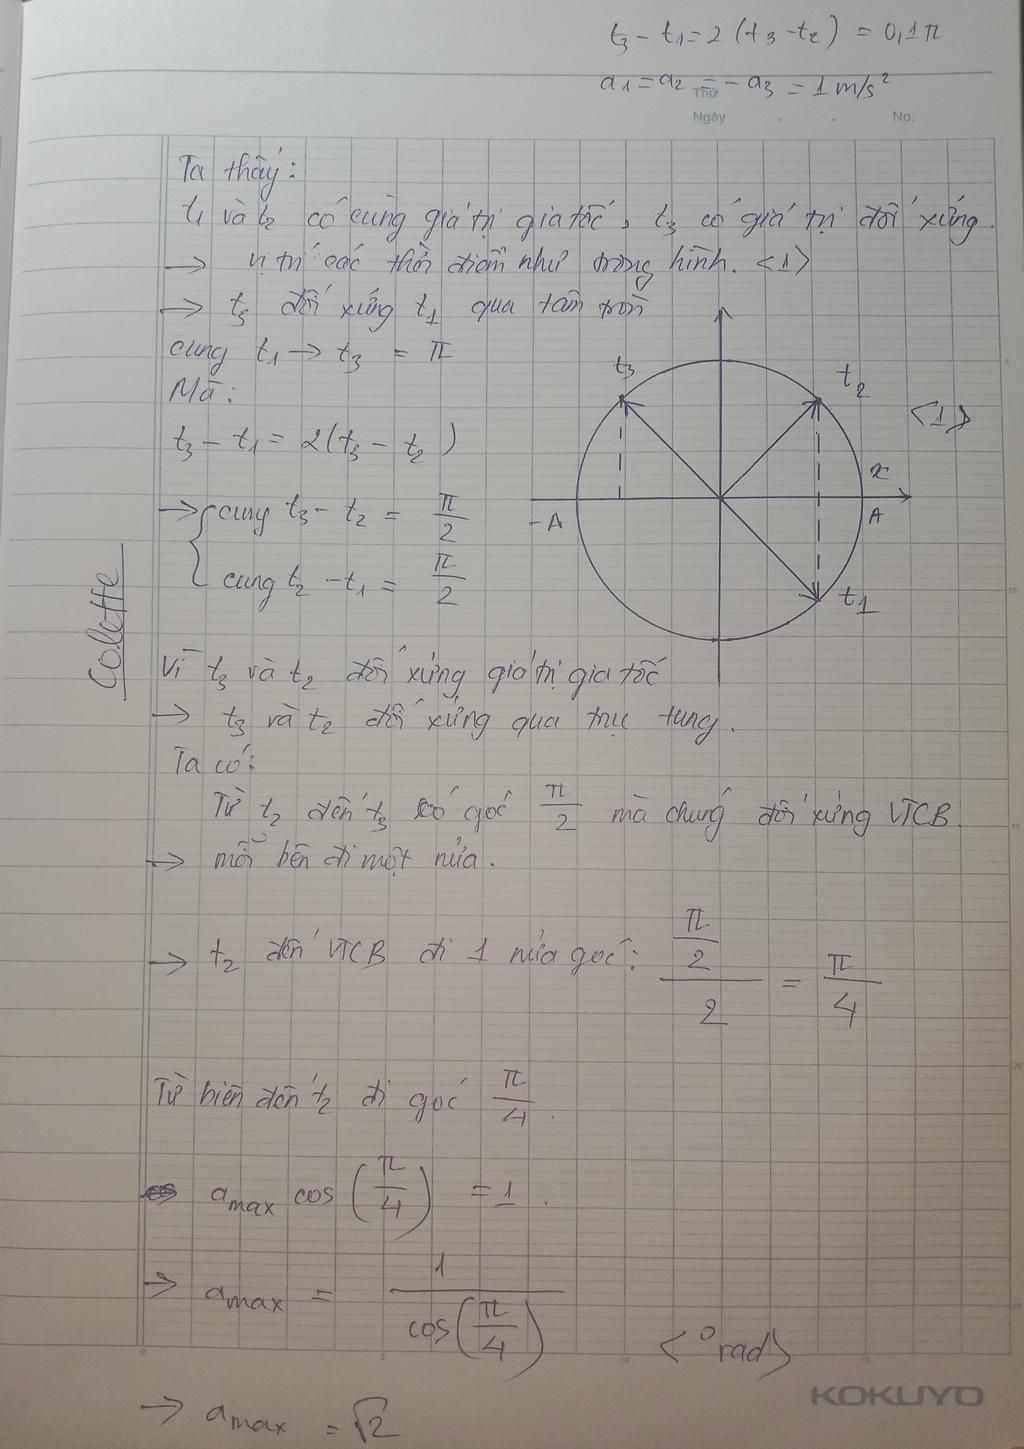 t3 - t1 = 2 (t3 - t2) = 0,1π
a1 = a2 = - a3 = 1 m/s²
Thứ
Ngày . . No.
Ta thấy:
t1 và t2 có cùng giá trị gia tốc, t3 có giá trị đối xứng.
→ vị trí các thời điểm như trong hình. <1>
→ t3 đối xứng t1 qua tâm tròn
cung t1 → t3 = π
Mà:
t3 - t1 = 2(t3 - t2)
→ { cung t3 - t2 = π/2
cung t2 - t1 = π/2
t3
t2
<1>
x
-A
A
t1
Colette
Vì t3 và t2 đối xứng giá trị gia tốc
→ t3 và t2 đối xứng qua trục tung.
Ta có:
Từ t2 đến t3 có góc π/2 mà chúng đối xứng VTCB.
→ mỗi bên đi một nửa.
→ t2 đến VTCB đi 1 nửa góc: (π/2)/2 = π/4
Từ biên đến t2 đi góc π/4.
a max cos(π/4) = 1.
→ a max = 1/cos(π/4) <° rad>
→ a max = √2
KOKUYO